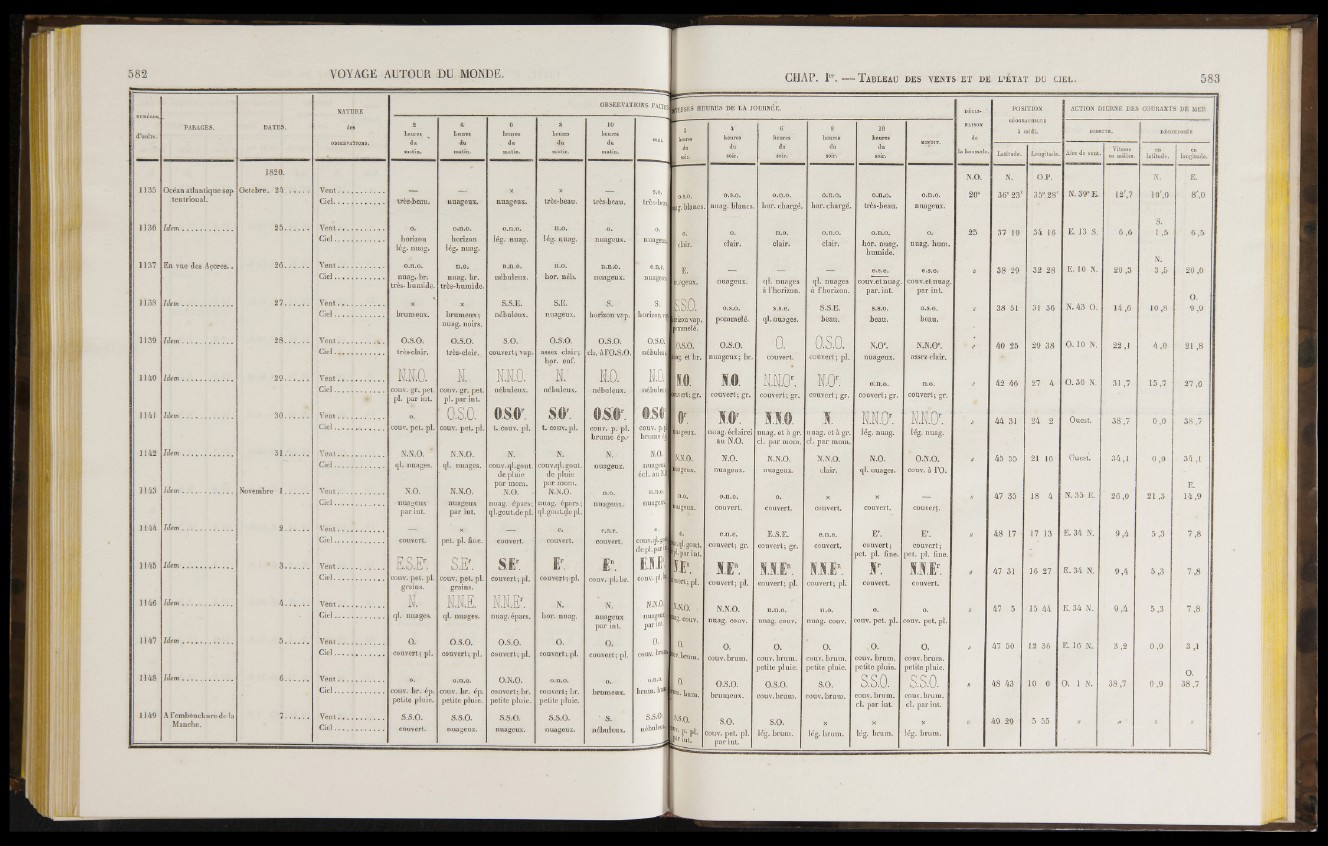 582 VOYAGE AUTOUR DU MONDE.
NUMÉROS d'ordre. PARAGES. DATES. NATURE des OBSERVATIONS.
2 heures du matin. 4 heures du matin. 6 heures du matin. 8 heures du matin. 10 heures du matin.
1820.
1135 Océan atlantique sep- Octobre. 24 Vent — — x x — s.o.
tentrional. Ciel très-beau. nuageux. nuageux. très-beau. très-beau.
1136 Idem 25 Vent o. o.n.o. o.n.o. n.o. o. o.
Ciel horizon horizon lég. nuag. lég. nuag. nuageux.
lég. nuag. lég. nuag.
1137 En vue des Açores. 26 Vent o.n.o. n.o. n.n.o. n.o. n.n.o.
Ciel nuag. br. nuag. br. nébuleux. hor. néb. nuageux.
très-humide. très-humide.
1138 Idem 27 Vent x x S.S.E. S.E. S. S.
Ciel brumeux. brumeux; nébuleux. nuageux. horizon vap.
nuag. noirs.
1139 Idem 28 Vent O.S.O. O.S.O. S.O. O.S.O. O.S.O. O.S.O.
Ciel très-clair. très-clair. couvert; vap. assez clair; cl. à l'O.S.O.
hor. enf.
1140 Idem 29 Vent N.N.O. N. N.N.O. N. N.O. N.O.
Ciel couv. gr. pet. couv. gr. pet. nébuleux. nébuleux. nébuleux.
pl. par int. pl. par int.
1141 Idem 30 Vent o. O.S.O. O.S.Or. S.Or. O.S.Or.
Ciel couv. pet. pl. couv. pet. pl. t. couv. pl. t. couv. pl. couv. p. pl.
brume ép.
1142 Idem 31 Vent N.N.O. N.N.O. N. N. N. N.O.
Ciel ql. nuages. ql. nuages. couv.ql.gout. couv.ql.gout. nuageux.
de pluie de pluie
par mom. par mom.
1143 Idem Novembre 1 Vent N.O. N.N.O. N.O. N.N.O. n.o.
Ciel nuageux nuageux nuag. épars; nuag. épars; nuageux.
par int. par int. ql.gout.de pl. ql.gout.de pl.
1144 Idem 2 Vent — x — e. e.n.e.
Ciel couvert. pet. pl. fine. couvert. couvert. couvert.
1145 Idem 3 Vent E.S.Er. S.Er. S.Er. Er. Er.
Ciel couv. pet. pl. couv. pet. pl. couvert; pl. couvert; pl. couv. pl. br.
grains. grains.
1146 Idem 4 Vent N. N.N.E. N.N.Er. N. N. N.N.O.
Ciel ql. nuages. ql. nuages. nuag. épars. hor. nuag. nuageux
par int.
1147 Idem 5 Vent O. O.S.O. O.S.O. O. O. O.
Ciel couvert; pl. couvert; pl. couvert; pl. couvert; pl. couvert; pl.
1148 Idem 6 Vent o. o.n.o. O.N.O. o.n.o. o. o.n.o.
Ciel couv. br. ép. couv. br. ép. couvert; br. couvert; br. brumeux.
petite pluie. petite pluie. petite pluie. petite pluie.
1149 A l'embouchure de la 7 Vent S.S.O. S.S.O. S.S.O. S.S.O. S. S.S.O.
Manche. Ciel couvert. nuageux. nuageux. nuageux. nébuleux.
CHAP. Ier. — TABLEAU DES VENTS ET DE L'ÉTAT DU CIEL. 583
HEURES DE LA JOURNÉE. DÉCLINAISON de la boussole. POSITION GÉOGRAPHIQUE à midi. ACTION DIURNE DES COURANTS DE MER
2 heures du soir. 4 heures du soir. 6 heures du soir. 8 heures du soir. 10 heures du soir. MINUIT. Latitude. Longitude. DIRECTE. Aire de vent. Vitesse en milles. DÉCOMPOSÉE en latitude. en longitude.
N.O. N. O.P. N. E.
o.s.o. o.s.o. o.n.o. o.n.o. o.n.o. o.n.o. 20° 36° 23' 35° 28' N. 39° E. 12',7 10',0 8',0
nuag. blancs. hor. chargé. hor. chargé. très-beau. nuageux.
S.
o. o. n.o. o.n.o. o.n.o. o. 25 37 10 34 16 E. 13 S. 6,6 1,5 6,5
clair. clair. clair. clair. hor. nuag. nuag. hum.
humide.
N.
E. — — — e.s.e. e.s.e. 38 29 32 28 E. 10 N. 20,3 3,5 20,0
nuageux. ql. nuages ql. nuages couv.et nuag. couv.et nuag.
à l'horizon. à l'horizon. par. int. par int.
O.
S.S.O. o.s.o. s.s.e. S.S.E. s.s.o. o.s.o. 38 51 31 36 N. 43 O. 14,6 10,8 9,9
pommelé. ql. nuages. beau. beau. beau.
O.S.O. O.S.O. O. O.S.O. N.Or. N.N.Or. 40 25 29 38 O. 10 N. 22,1 4,0 21,8
nuageux; br. couvert. couvert; pl. nuageux. assez clair.
N.O. N.O. N.N.Or. N.Or. o.n.o. n.o. 42 46 27 4 O. 30 N. 31,7 15,7 27,0
couvert; gr. couvert; gr. couvert; gr. couvert; gr. couvert; gr.
Or. N.Or. N.N.O. N. N.N.Or. N.N.Or. 44 31 24 2 Ouest. 38,7 0,0 38,7
nuag. éclairci nuag. et à gr. nuag. et à gr. lég. nuag. lég. nuag.
au N.O. cl. par mom. cl. par mom.
N.N.O. N.O. N.N.O. N.N.O. N.O. O.N.O. 45 55 21 10 Ouest. 34,1 0,0 34,1
nuageux. nuageux. clair. ql. nuages. couv. à l'O.
E.
n.o. o.n.o. o. x x — 47 35 18 4 N. 35 E. 26,0 21,3 14,9
couvert. couvert. couvert. couvert. couvert.
e. e.n.e. E.S.E. e.n.e. Er. Er. 48 17 17 13 E. 34 N. 9,4 5,3 7,8
couvert; gr. couvert; gr. couvert. couvert; couvert;
pet. pl. fine. pet. pl. fine.
N.Er. N.N.Er. N.N.Er. Nr. N.N.Er. 47 31 16 27 E. 34 N. 9,4 5,3 7,8
couvert; pl. couvert; pl. couvert; pl. couvert. couvert.
N.N.O. N.N.O. n.n.o. n.o. o. o. 47 5 15 44 E. 34 N. 9,4 5,3 7,8
nuag. couv. nuag. couv. nuag. couv. couv. pet. pl. couv. pet. pl.
O. O. O. O. O. O. 47 50 12 36 E. 16 N. 3,2 0,9 3,1
couv. brum. couv. brum. couv. brum. couv. brum. couv. brum.
petite pluie. petite pluie. petite pluie. petite pluie.
O.
O. O.S.O. O.S.O. S.O. S.S.O. S.S.O. 48 43 10 6 O. 1 N. 38,7 0,9 38,7
brumeux. couv. brum. couv. brum. couv. brum. couv. brum.
cl. par int. cl. par int.
S.S.O. S.O. S.O. x x x 49 29 5 55
couv. pet. pl. lég. brum. lég. brum. lég. brum. lég. brum.
par int.